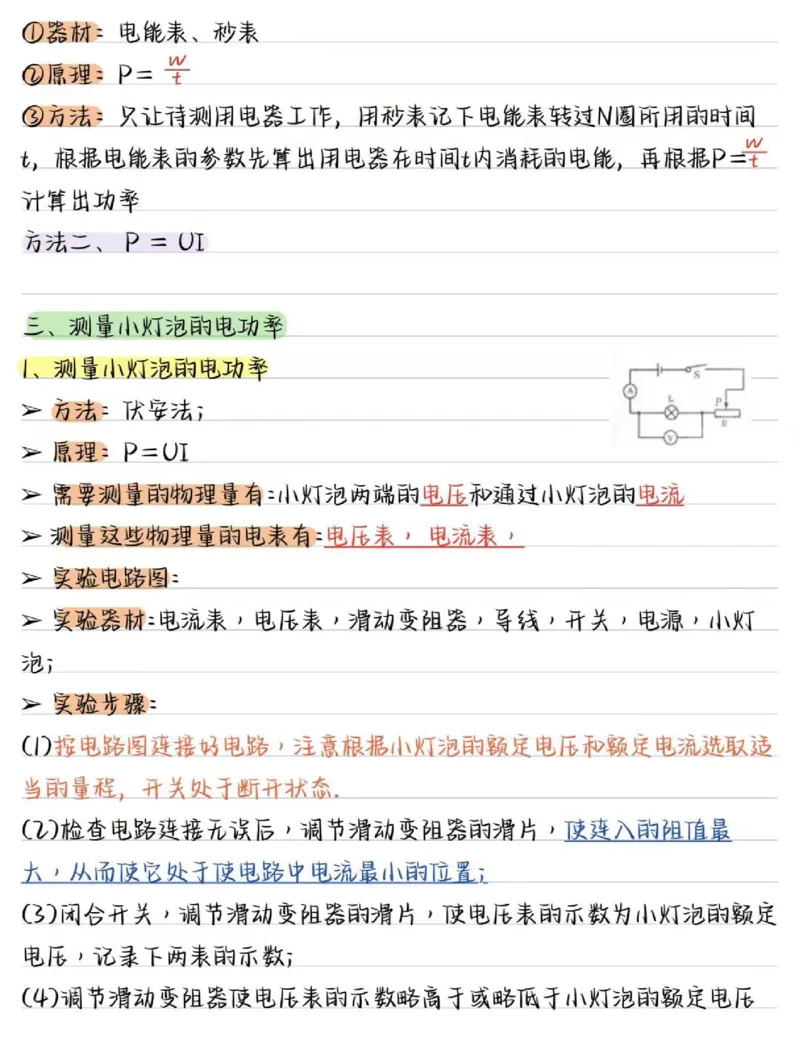 ①器材：电能表、秒表
②原理：P= W/t
③方法：只让待测用电器工作，用秒表记下电能表转过N圈所用的时间
t，根据电能表的参数先算出用电器在时间t内消耗的电能，再根据P=W/t
计算出功率
方法二、 P = UI
三、测量小灯泡的电功率
1、测量小灯泡的电功率
➢ 方法：伏安法；
➢ 原理：P=UI
➢ 需要测量的物理量有：小灯泡两端的电压和通过小灯泡的电流
➢ 测量这些物理量的电表有：电压表， 电流表，
➢ 实验电路图：
S
A
L
P
R
V
➢ 实验器材：电流表，电压表，滑动变阻器，导线，开关，电源，小灯
泡；
➢ 实验步骤：
(1)按电路图连接好电路，注意根据小灯泡的额定电压和额定电流选取适
当的量程，开关处于断开状态.
(2)检查电路连接无误后，调节滑动变阻器的滑片，使连入的阻值最
大，从而使它处于使电路中电流最小的位置；
(3)闭合开关，调节滑动变阻器的滑片，使电压表的示数为小灯泡的额定
电压，记录下两表的示数；
(4)调节滑动变阻器使电压表的示数略高于或略低于小灯泡的额定电压